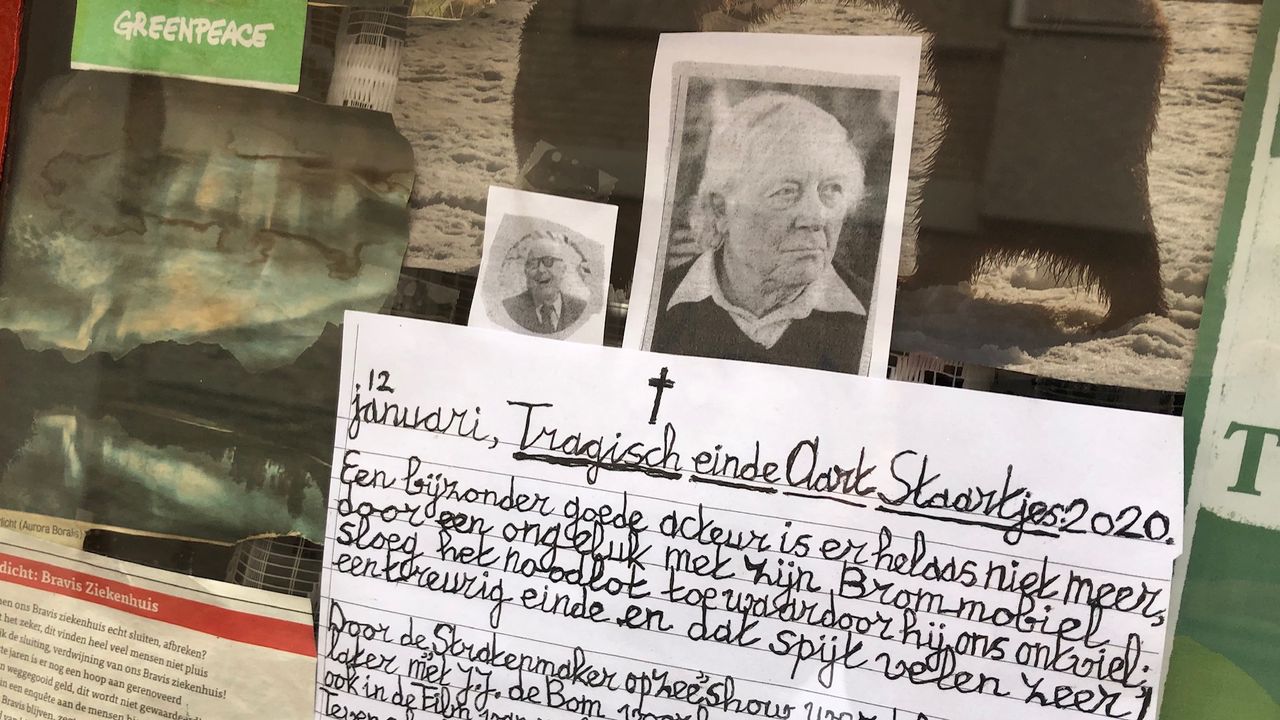 GREENPEACE
12
januari, Tragisch einde Aart Staartjes: 2020.
Een bijzonder goede acteur is er helaas niet meer,
door een ongeluk met zijn Brommobiel
sloeg het noodlot toe waardoor hij ons ontviel;
een treurig einde en dat spijt velen zeer,
Door de Stratenmaker op zeeshow
later met J.J. de Bom
ook in de Film van
T
licht (Aurora Boralis)
dicht: Bravis Ziekenhuis
en ons Bravis ziekenhuis echt sluiten, afbreken?
t het zeker, dit vinden heel veel mensen niet pluis
k de sluiting, verdwijning van ons Bravis ziekenhuis!
te jaren is er nog een hoop aan gerenoveerd
n weggegooid geld, dit wordt niet gewaardeerd
n een enquête aan de mensen
Bravis blijven,